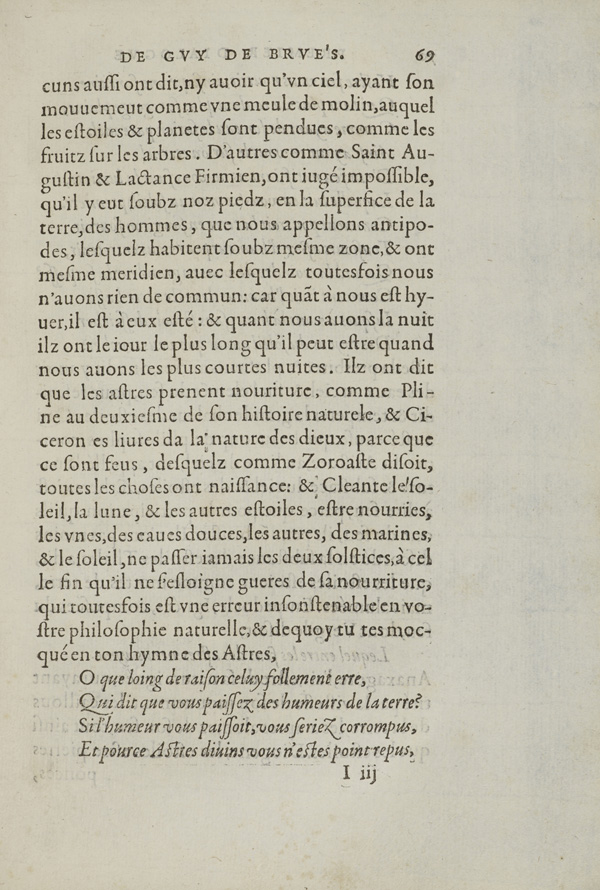 DE GVY DE BRVE'S. 69
cuns aussi ont dit,ny auoir qu'vn ciel, ayant son
mouuemeut comme vne meule de molin,auquel
les estoiles & planetes sont pendues, comme les
fruitz sur les arbres. D'autres comme Saint Au-
gustin & Lactance Firmien,ont iugé impossible,
qu'il y eut soubz noz piedz, en la superfice de la
terre,des hommes, que nous appellons antipo-
des, lesquelz habitent soubz mesme zone,& ont
mesme meridien, auec lesquelz toutesfois nous
n'auons rien de commun: car quãt à nous est hy-
uer,il est à eux esté: & quant nous auons la nuit
ilz ont le iour le plus long qu'il peut estre quand
nous auons les plus courtes nuites. Ilz ont dit
que les astres prenent nouriture, comme Pli-
ne au deuxiesme de son histoire naturele, & Ci-
ceron es liures da la nature des dieux, parce que
ce sont feus, desquelz comme Zoroaste disoit,
toutes les choses ont naissance: & Cleante le so-
leil,la lune, & les autres estoiles, estre nourries,
les vnes,des eaues douces,les autres, des marines,
& le soleil,ne passer iamais les deux solstices,à cel
le fin qu'il ne s'esloigne gueres de sa nourriture,
qui toutesfois est vne erreur insonstenable en vo-
stre philosophie naturelle,& dequoy tu tes moc-
qué en ton hymne des Astres,
O que loing de raison celuy follement erre,
Qui dit que vous paissez des humeurs de la terre?
Si l'humeur vous paissoit,vous seriez corrompus,
Et pource Astres diuins vous n'estes point repus,
I iij